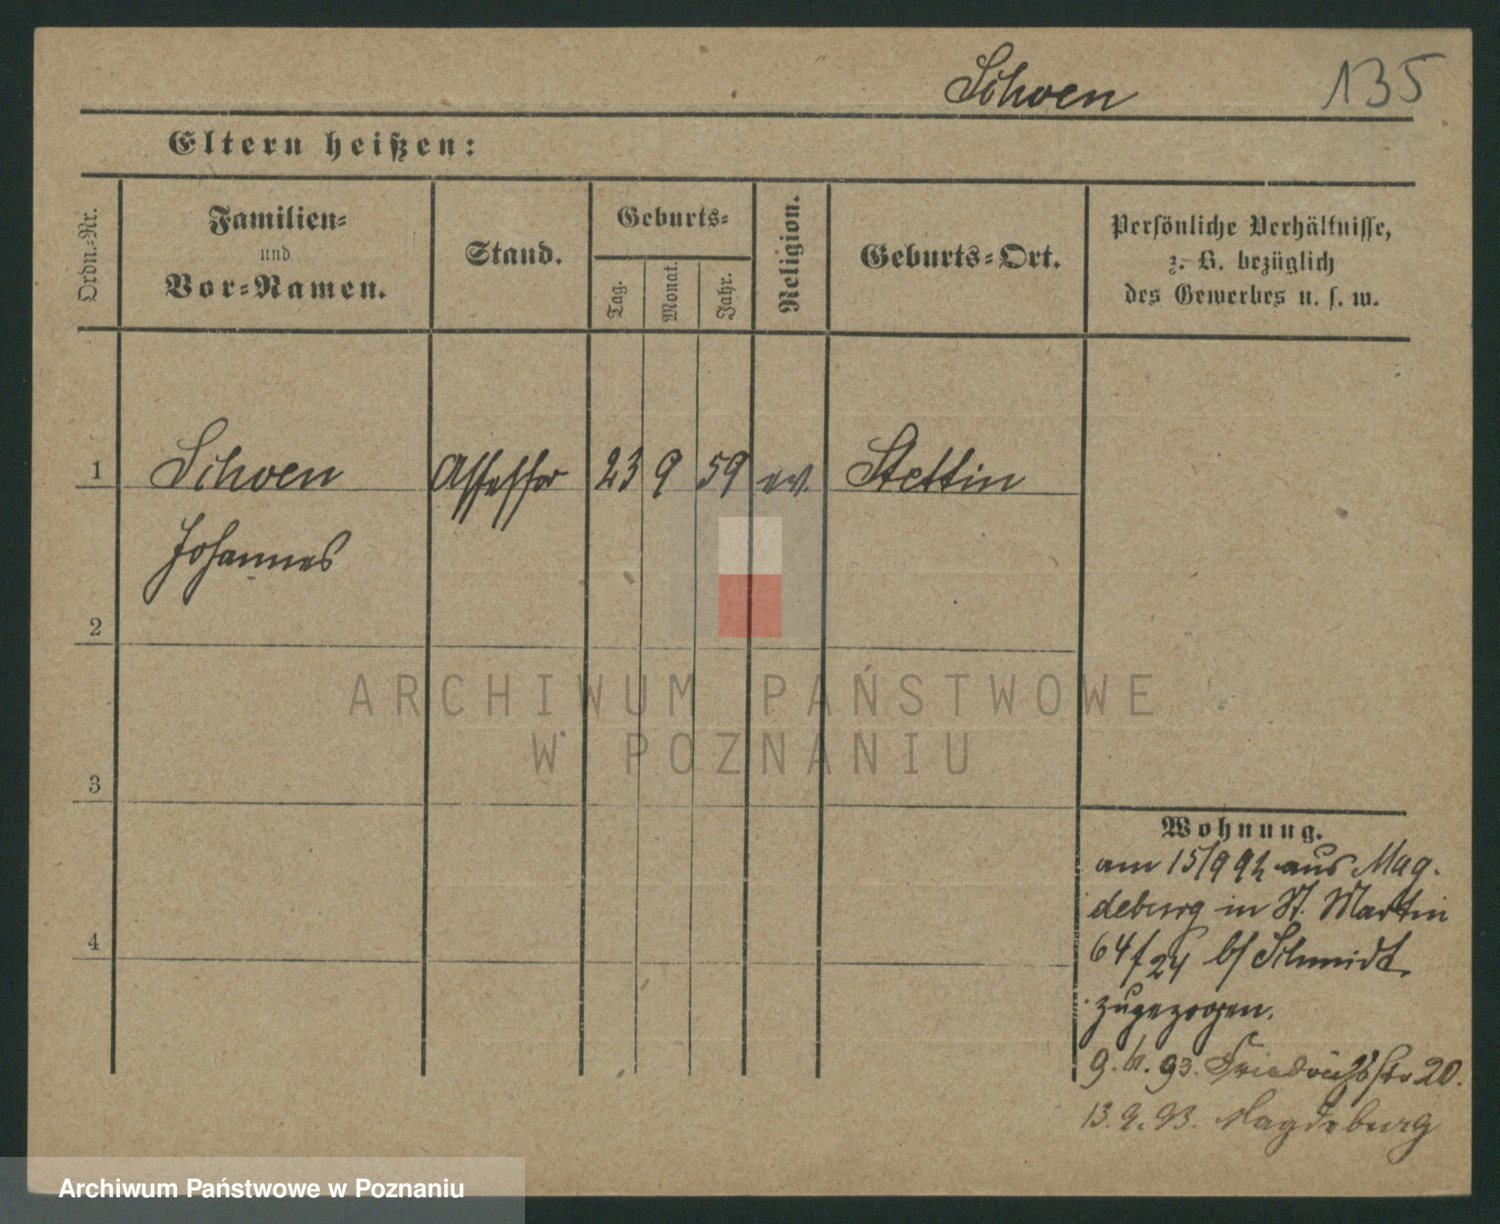 Schoen 135
Eltern heißen:
Ordn.-Nr.
Familien-
und
Vor-Namen.
Stand.
Geburts-
Tag.
Monat.
Jahr.
Religion.
Geburts-Ort.
Persönliche Verhältnisse,
z. B. bezüglich
des Gewerbes u. s. w.
1 Schoen Assessor 23 9 59 ev. Stettin
Johannes
2
3
4
Wohnung.
am 15/9 92 aus Mag-
deburg in St. Martin
64 f 24 b/ Schmidt
zugezogen.
9. 6. 93. Friedrichstr 20.
13. 9. 93. Magdeburg
ARCHIWUM PAŃSTWOWE
W POZNANIU
Archiwum Państwowe w Poznaniu